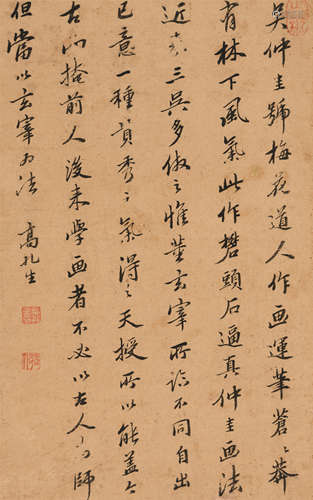 吴仲圭號梅花道人作画運筆蒼〻莽
有林下風氣此作礬頭石逼真仲圭画法
近來三吳多倣之惟董玄宰所詣不同自出
己意一種貟秀之氣得之天授所以能盖今
古而掩前人後来學画者不必以古人為師
但當以玄宰为法
高礼生